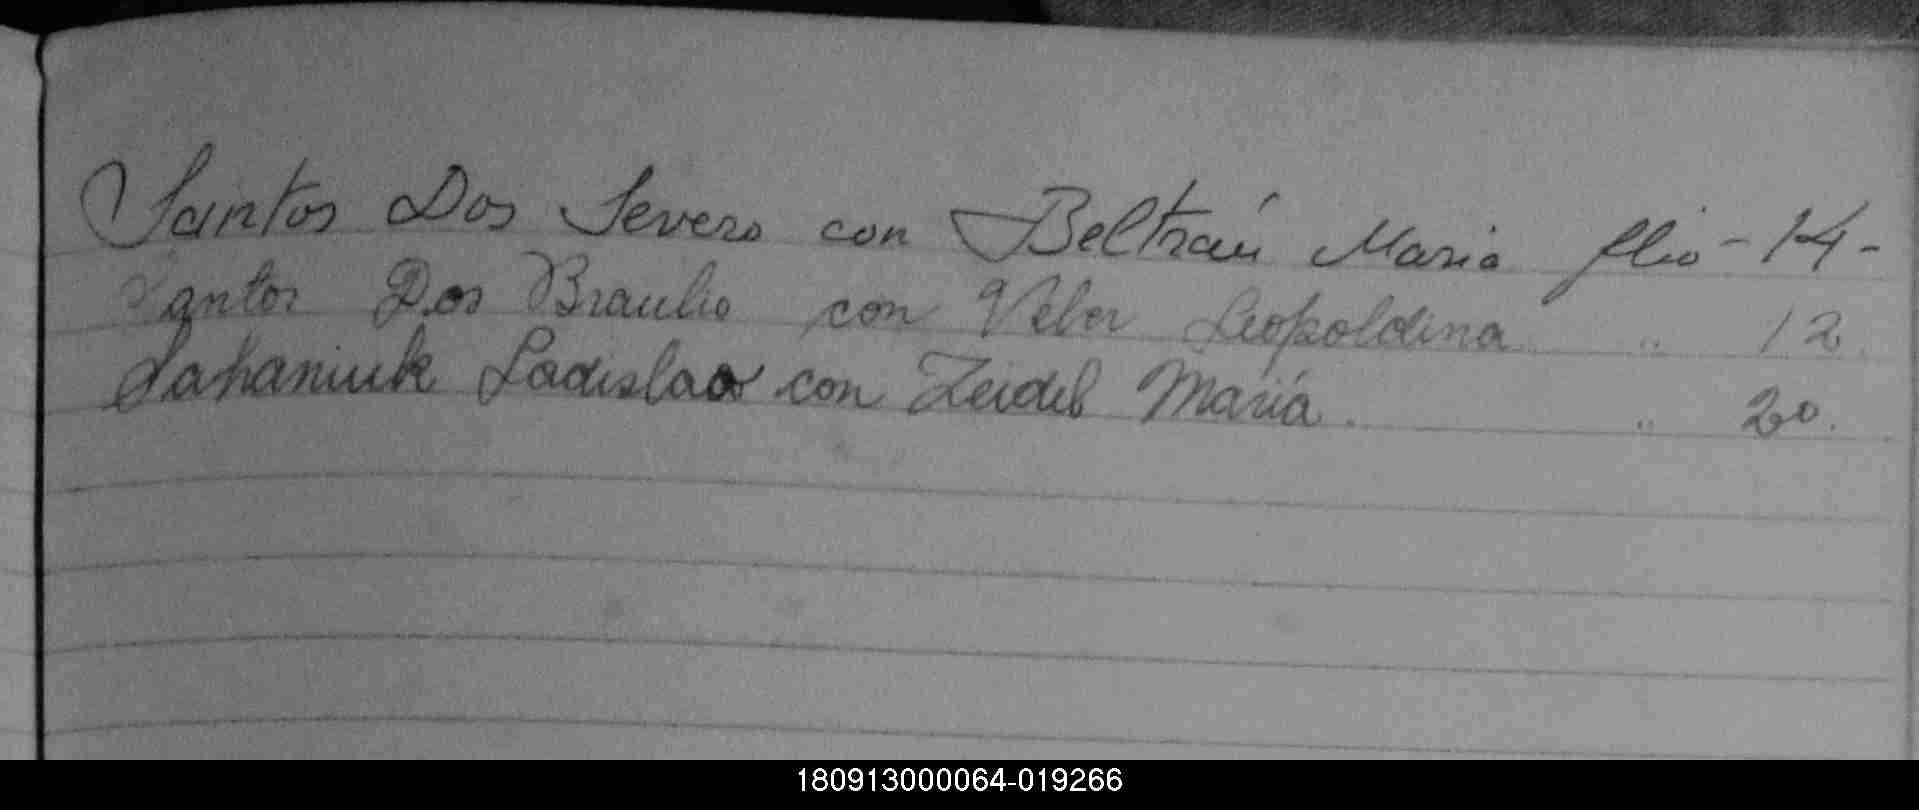 Santos Dos Severo con Beltrán Maria flio - 14 -
Santos Dos Braulio con Veber Leopoldina " 12.
Sahaniuk Ladislao con Zeidel María. " 20.
180913000064-019266